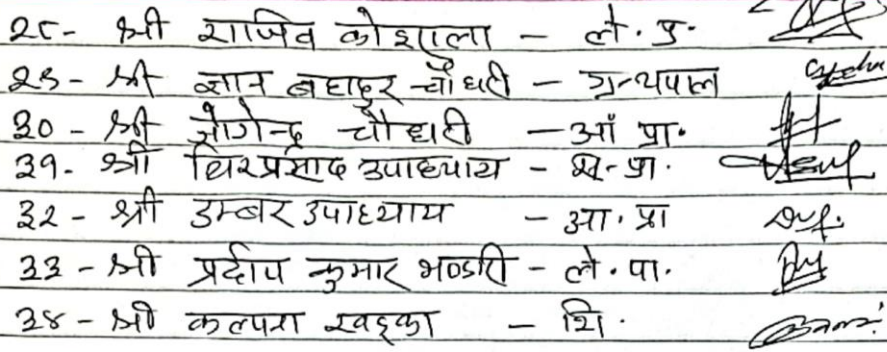 २८- श्री राजिव कोइराला - ले. प्र.
२९- श्री ज्ञान बहादुर चौधरी - ग्रन्थपाल
३० - श्री जोगेन्द्र चौधरी - आं प्रा.
३१- श्री विरप्रसाद उपाध्याय - प्रा.
३२ - श्री डम्बर उपाध्याय - आ. प्रा
३३ - श्री प्रदीप कुमार भण्डारी - ले. पा.
३४ - श्री कल्पना खड्का - शि.